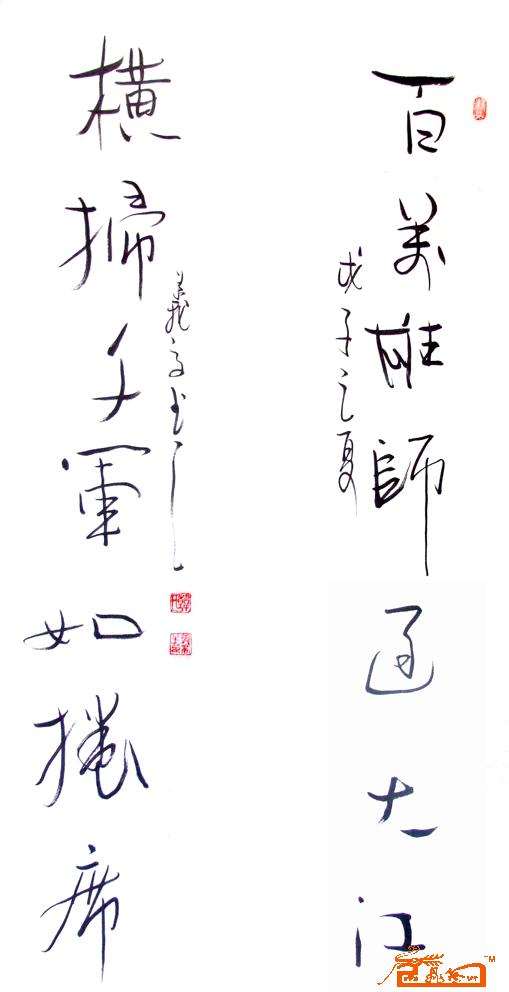 百萬雄師過大江
戊子之夏
横掃千軍如捲席